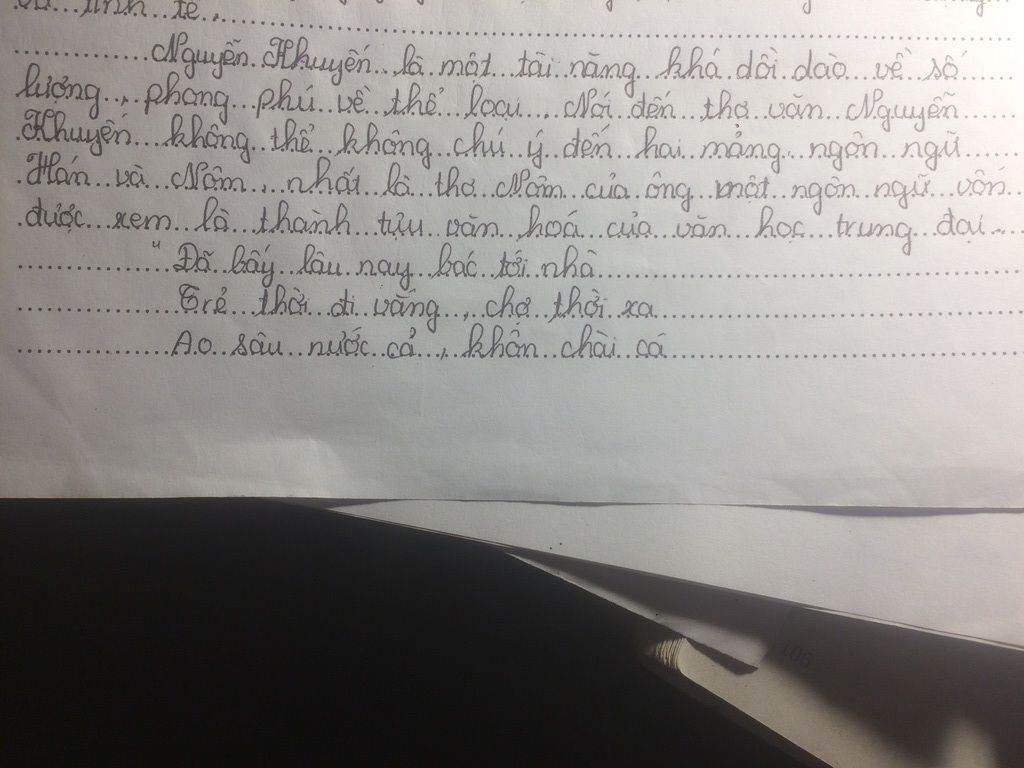 và tinh tế,
Nguyễn Khuyến là một tài năng khá dồi dào về số
lượng, phong phú về thể loại. Nói đến thơ văn Nguyễn
Khuyến không thể không chú ý đến hai mảng ngôn ngữ
Hán và Nôm, nhất là thơ Nôm của ông một ngôn ngữ vốn
được xem là thành tựu văn hoá của văn học trung đại.
" Đã bấy lâu nay bác tới nhà
Trẻ thời đi vắng, chợ thời xa
Ao sâu nước cả, khôn chài cá
106